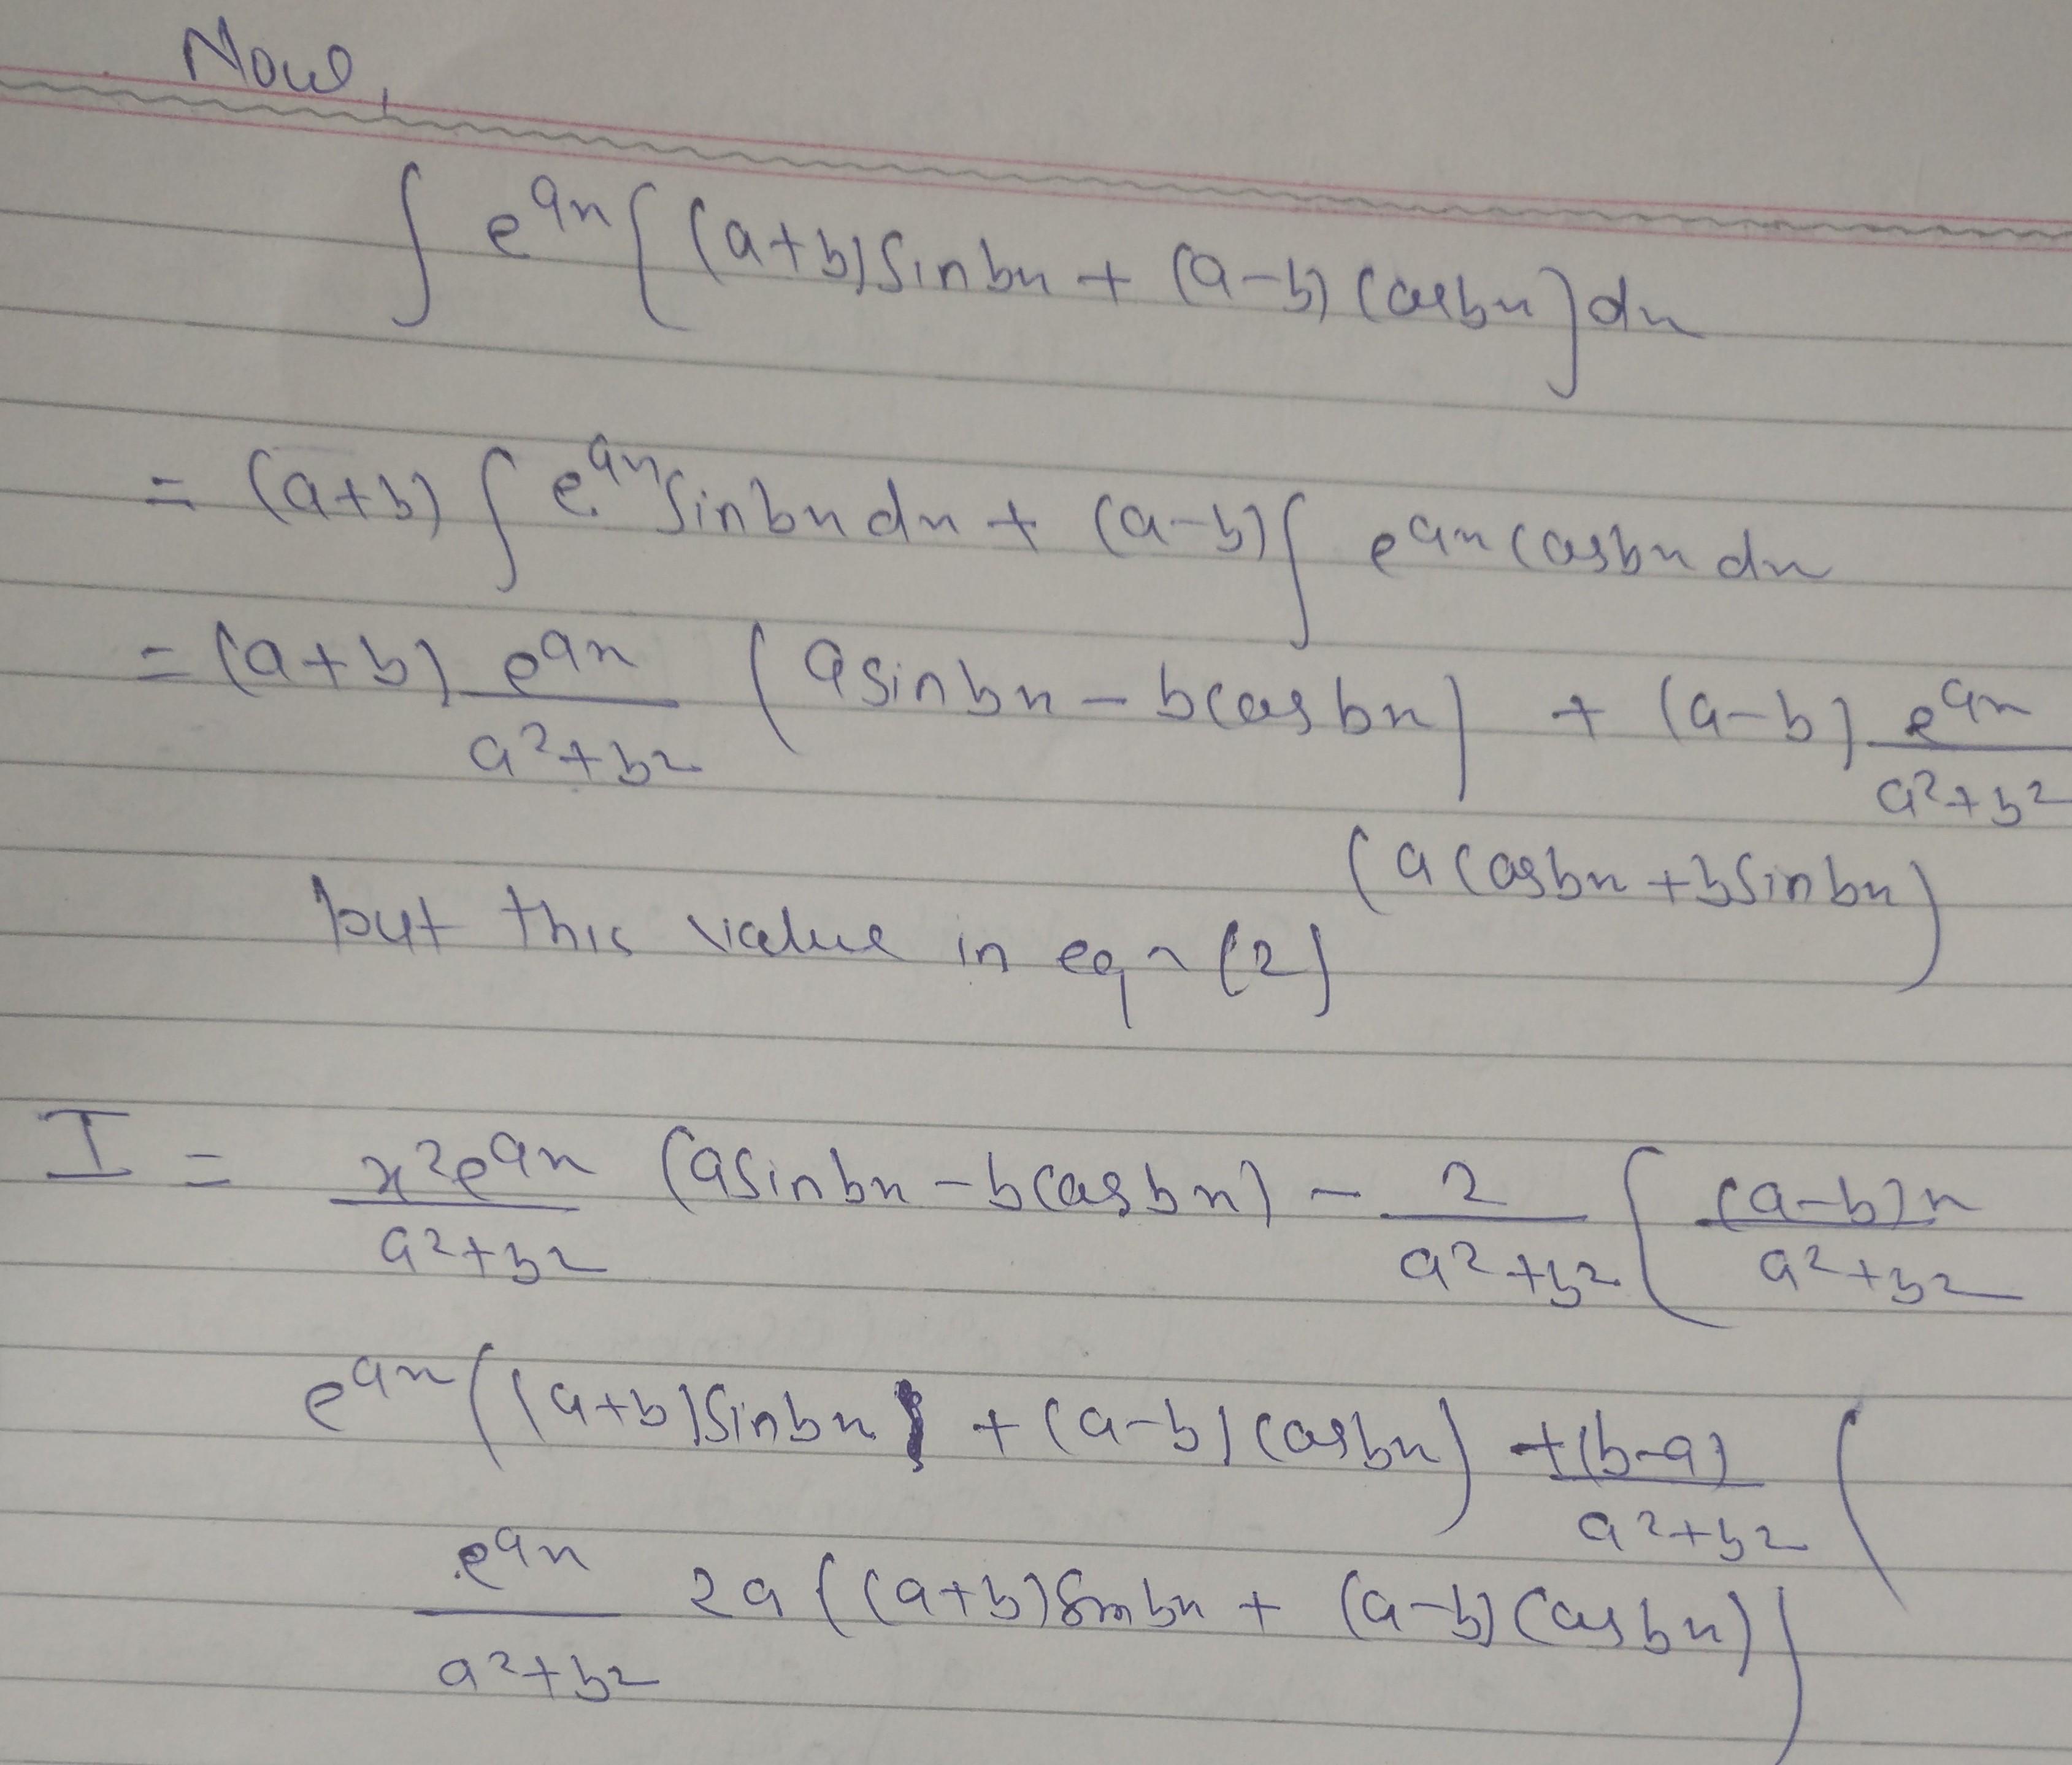 Now,
∫ e^{ax} [ (a+b) sin bx + (a-b) cos bx ] dx
= (a+b) ∫ e^{ax} sin bx dx + (a-b) ∫ e^{ax} cos bx dx
= (a+b) e^{ax}/(a²+b²) (a sin bx - b cos bx) + (a-b) e^{ax}/(a²+b²)
(a cos bx + b sin bx)
put this value in eqn (2)
I = x²e^{ax}/(a²+b²) (a sin bx - b cos bx) - 2/(a²+b²) [ (a-b)x/(a²+b²)
e^{ax} ((a+b) sin bx + (a-b) cos bx) + (b-a)/(a²+b²) (
e^{ax}/(a²+b²) 2a ((a+b) sin bx + (a-b) cos bx) )